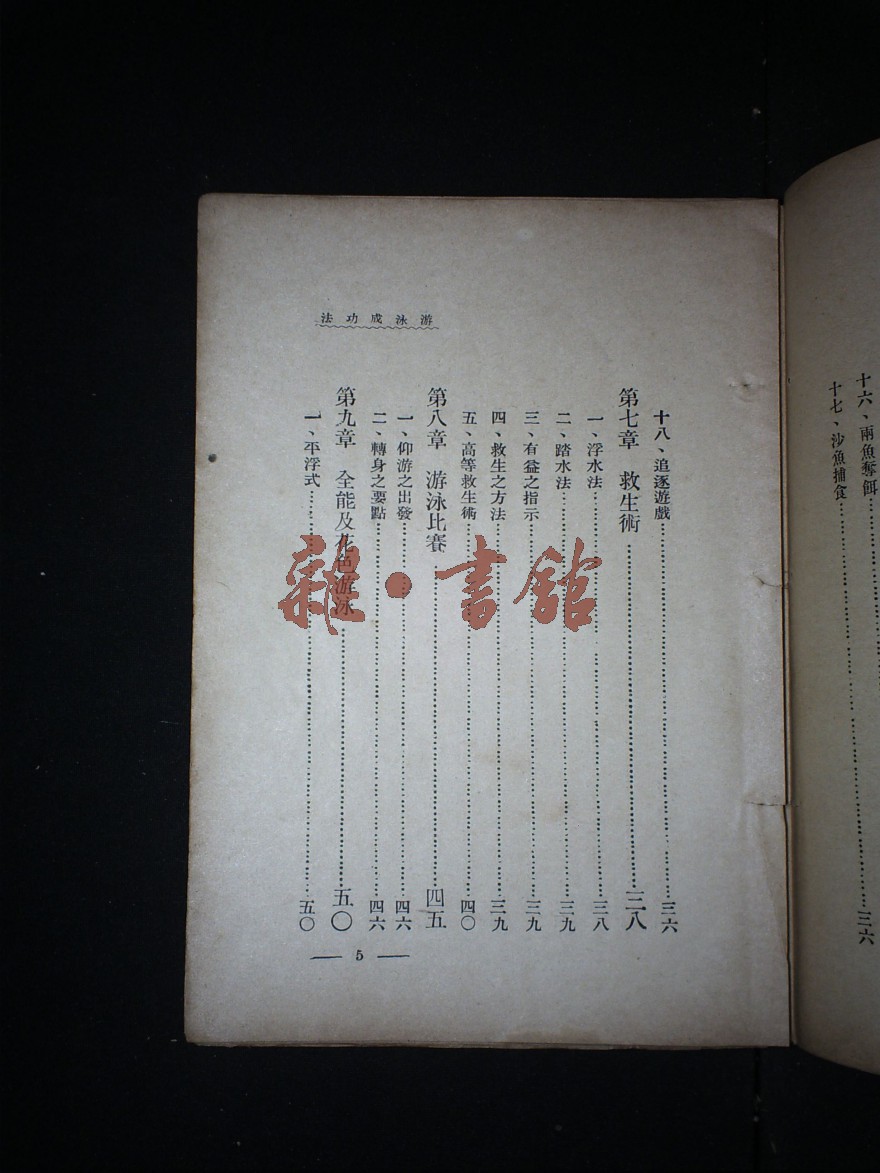 十六、兩魚奪餌
十七、沙魚捕食……三六
游泳成功法
十八、追逐遊戲……三六
第七章 救生術……三八
一、浮水法……三八
二、踏水法……三九
三、有益之指示……三九
四、救生之方法……三九
五、高等救生術……四〇
第八章 游泳比賽……四五
一、仰游之出發……四六
二、轉身之要點……四六
第九章 全能及花色游泳……五〇
一、平浮式……五〇
— 5 —
雜·書館